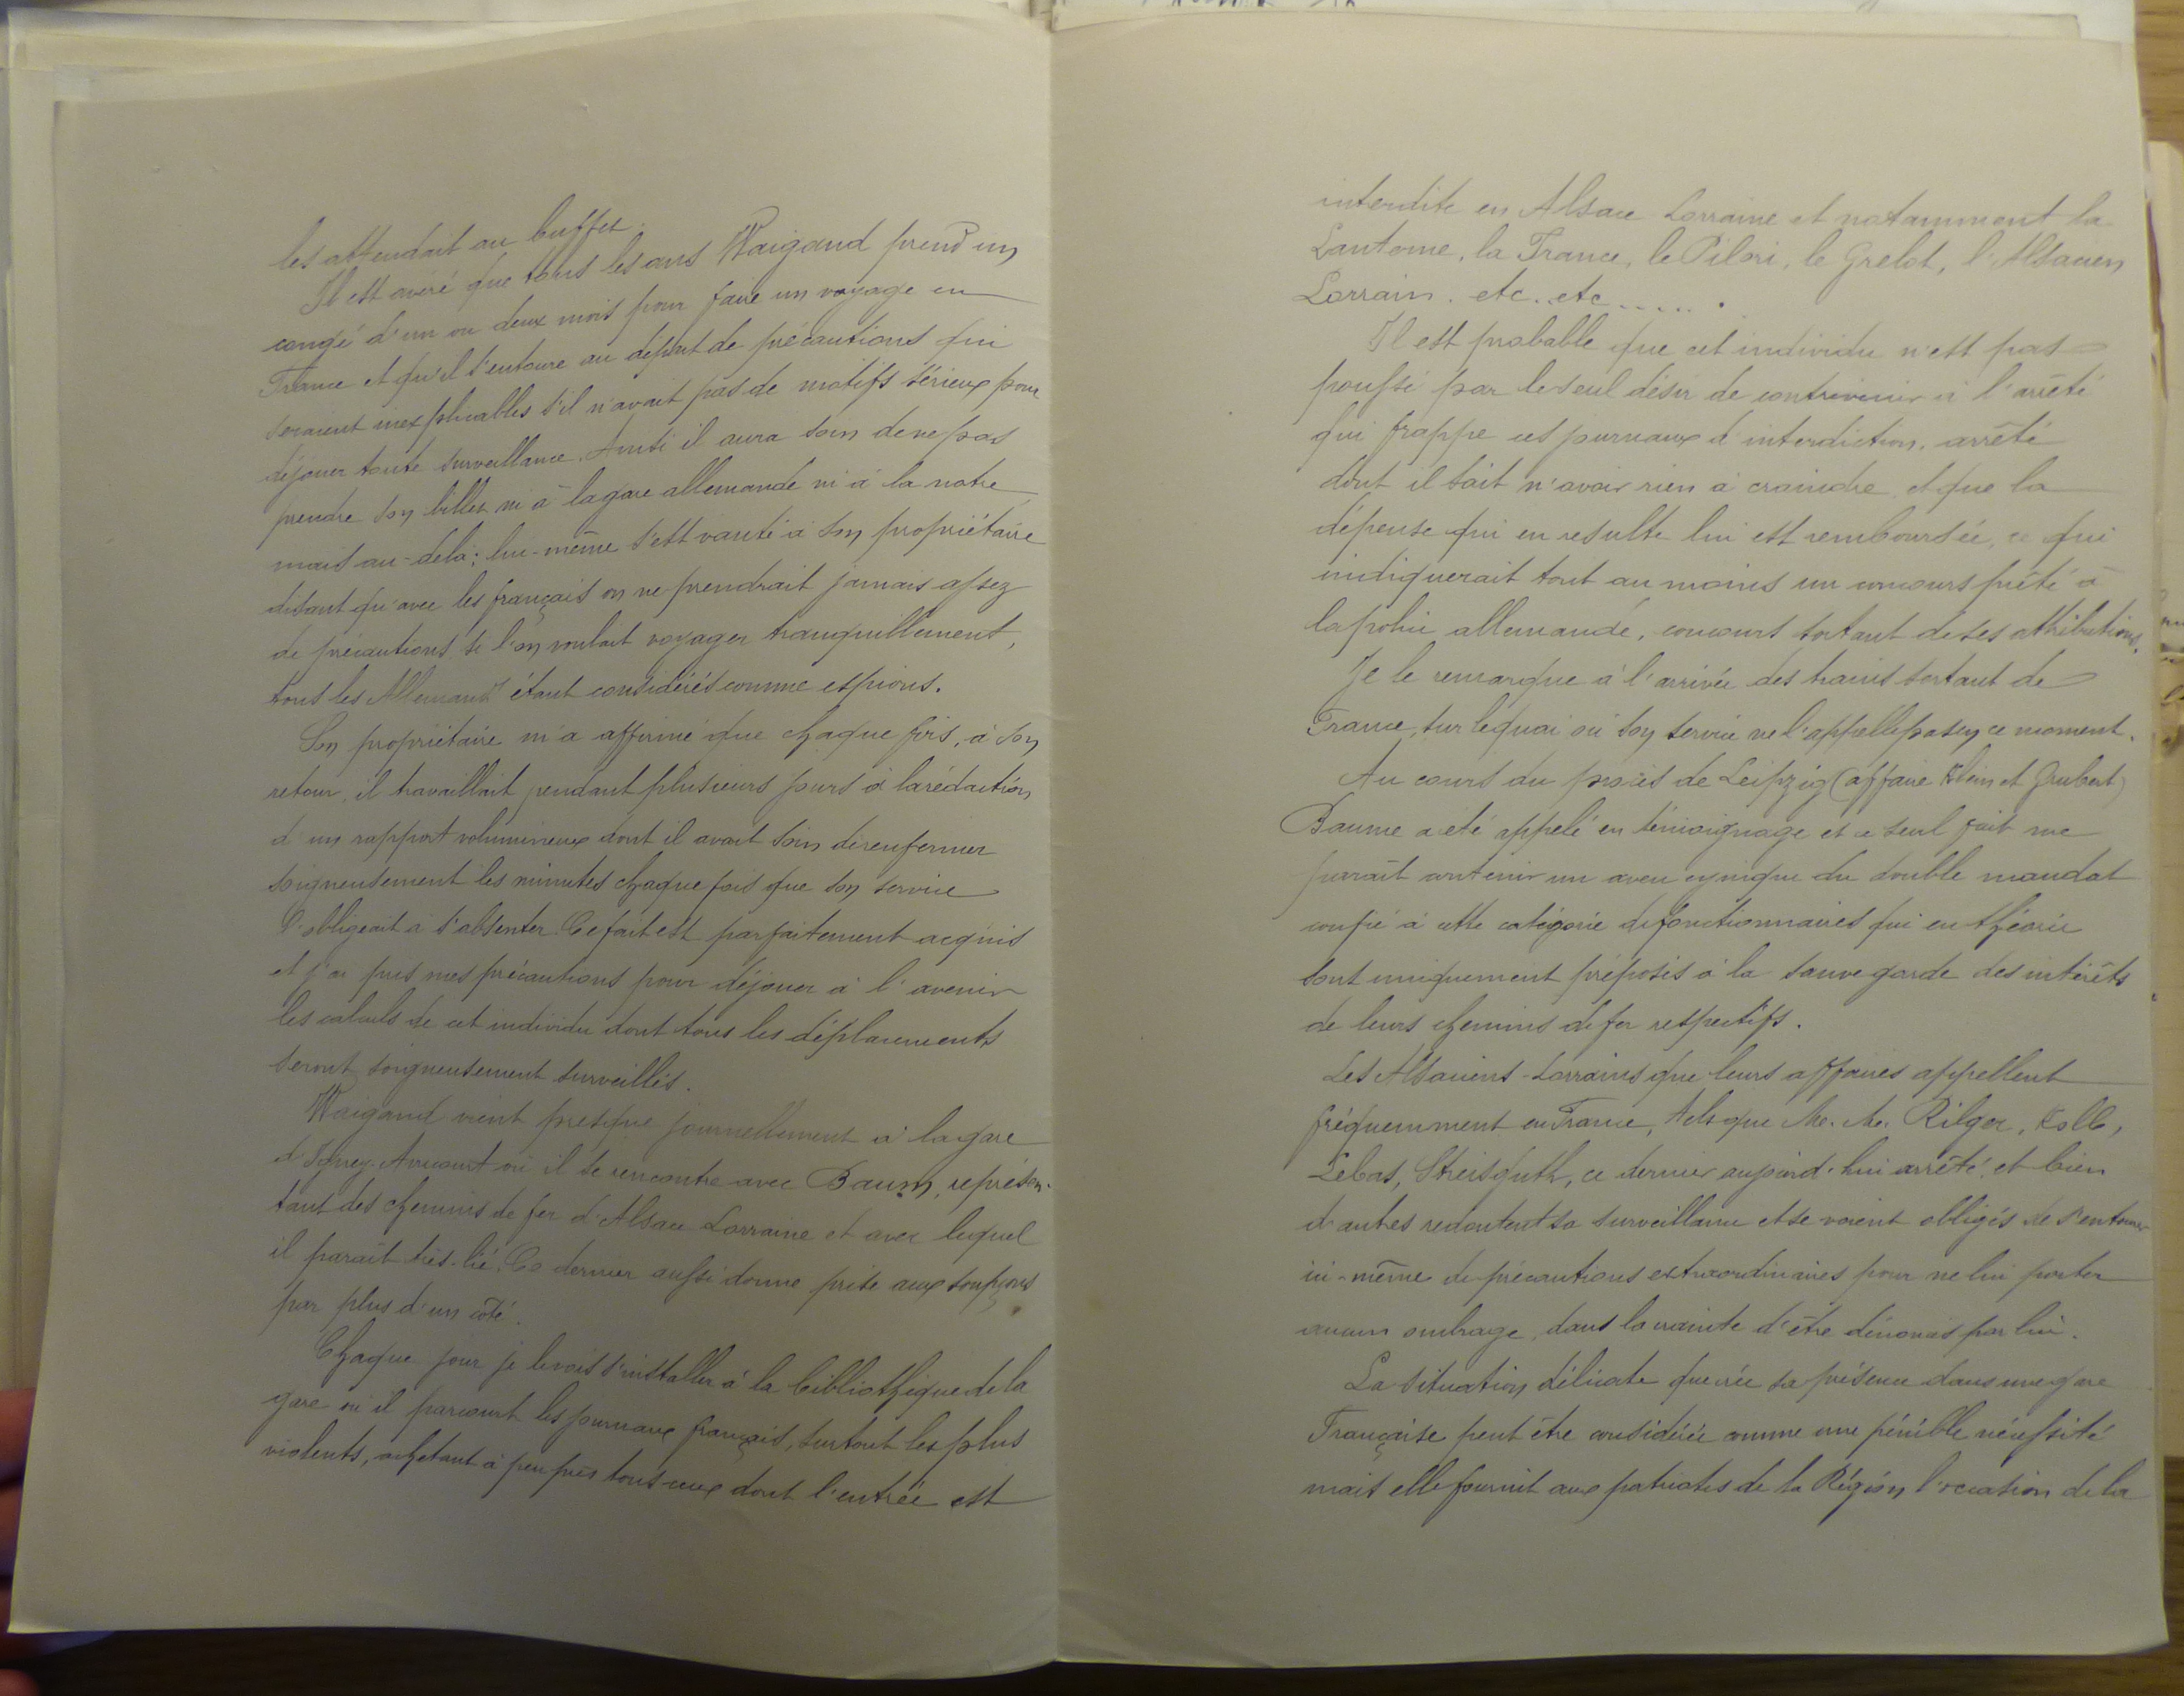 les attendait au buffet.
Il est avéré que tous les ans Waigand prend un
congé d'un ou deux mois pour faire un voyage en
France et qu'il s'entoure au départ de précautions qui
seraient inexplicables s'il n'avait pas de motifs sérieux pour
déjouer toute surveillance. Ainsi il aura soin de ne pas
prendre son billet ni à la gare allemande ni à la notre
mais au-delà; lui-même s'est vanté à son propriétaire
disant qu'avec les français on ne prendrait jamais assez
de précautions si l'on voulait voyager tranquillement,
tous les Allemands étant considérés comme espions.
Son propriétaire m'a affirmé que chaque fois, à son
retour, il travaillait pendant plusieurs jours à la rédaction
d'un rapport volumineux dont il avait soin de renfermer
soigneusement les minutes chaque fois que son service
l'obligeait à s'absenter. Ce fait est parfaitement acquis
et j'ai pris mes précautions pour déjouer à l'avenir
les calculs de cet individu dont tous les déplacements
seront soigneusement surveillés.
Waigand vient presque journellement à la gare
d'Igney-Avricourt où il se rencontre avec Baum, représen-
tant des chemins de fer d'Alsace Lorraine et avec lequel
il parait très-lié. Ce dernier aussi donne prise aux soupçons
par plus d'un côté.
Chaque jour je le vois s'installer à la bibliothèque de la
gare où il parcourt les journaux français, surtout les plus
violents, achetant à peu près tous ceux dont l'entrée est
interdite en Alsace Lorraine et notamment la
Lanterne, la France, le Pilori, le Grelot, l'Alsacien
Lorrain. etc. etc......
Il est probable que cet individu n'est pas
poussé par le seul désir de contrevenir à l'arrêté
qui frappe ces journaux d'interdiction, arrêté
dont il sait n'avoir rien à craindre et que la
dépense qui en resulte lui est remboursée, ce qui
indiquerait tout au moins un concours prêté à
la police allemande, concours sortant de ses attributions.
Je le remarque à l'arrivée des trains sortant de
France, sur le quai où son service ne l'appelle pas en ce moment.
Au cours du procès de Leipzig (affaire Klein et Grebert)
Baume a été appelé en témoignage et ce seul fait me
parait contenir un aveu cynique du double mandat
confié à cette catégorie de fonctionnaires qui en théorie
sont uniquement préposés à la sauvegarde des intérêts
de leurs chemins de fer respectifs.
Les Alsaciens-Lorrains que leurs affaires appellent
fréquemment en France, tels que M. M. Rilger, Kolb,
Lebas, Streisguth, ce dernier aujourd'hui arrêté, et bien
d'autres redoutent sa surveillance et se voient obligés de s'entourer
ici-même de précautions extraordinaires pour ne lui porter
aucun ombrage, dans la crainte d'être dénoncés par lui.
La situation délicate que crée sa présence dans une gare
Française peut être considérée comme une pénible nécessité
mais elle fournit aux patriotes de la Région l'occasion de la